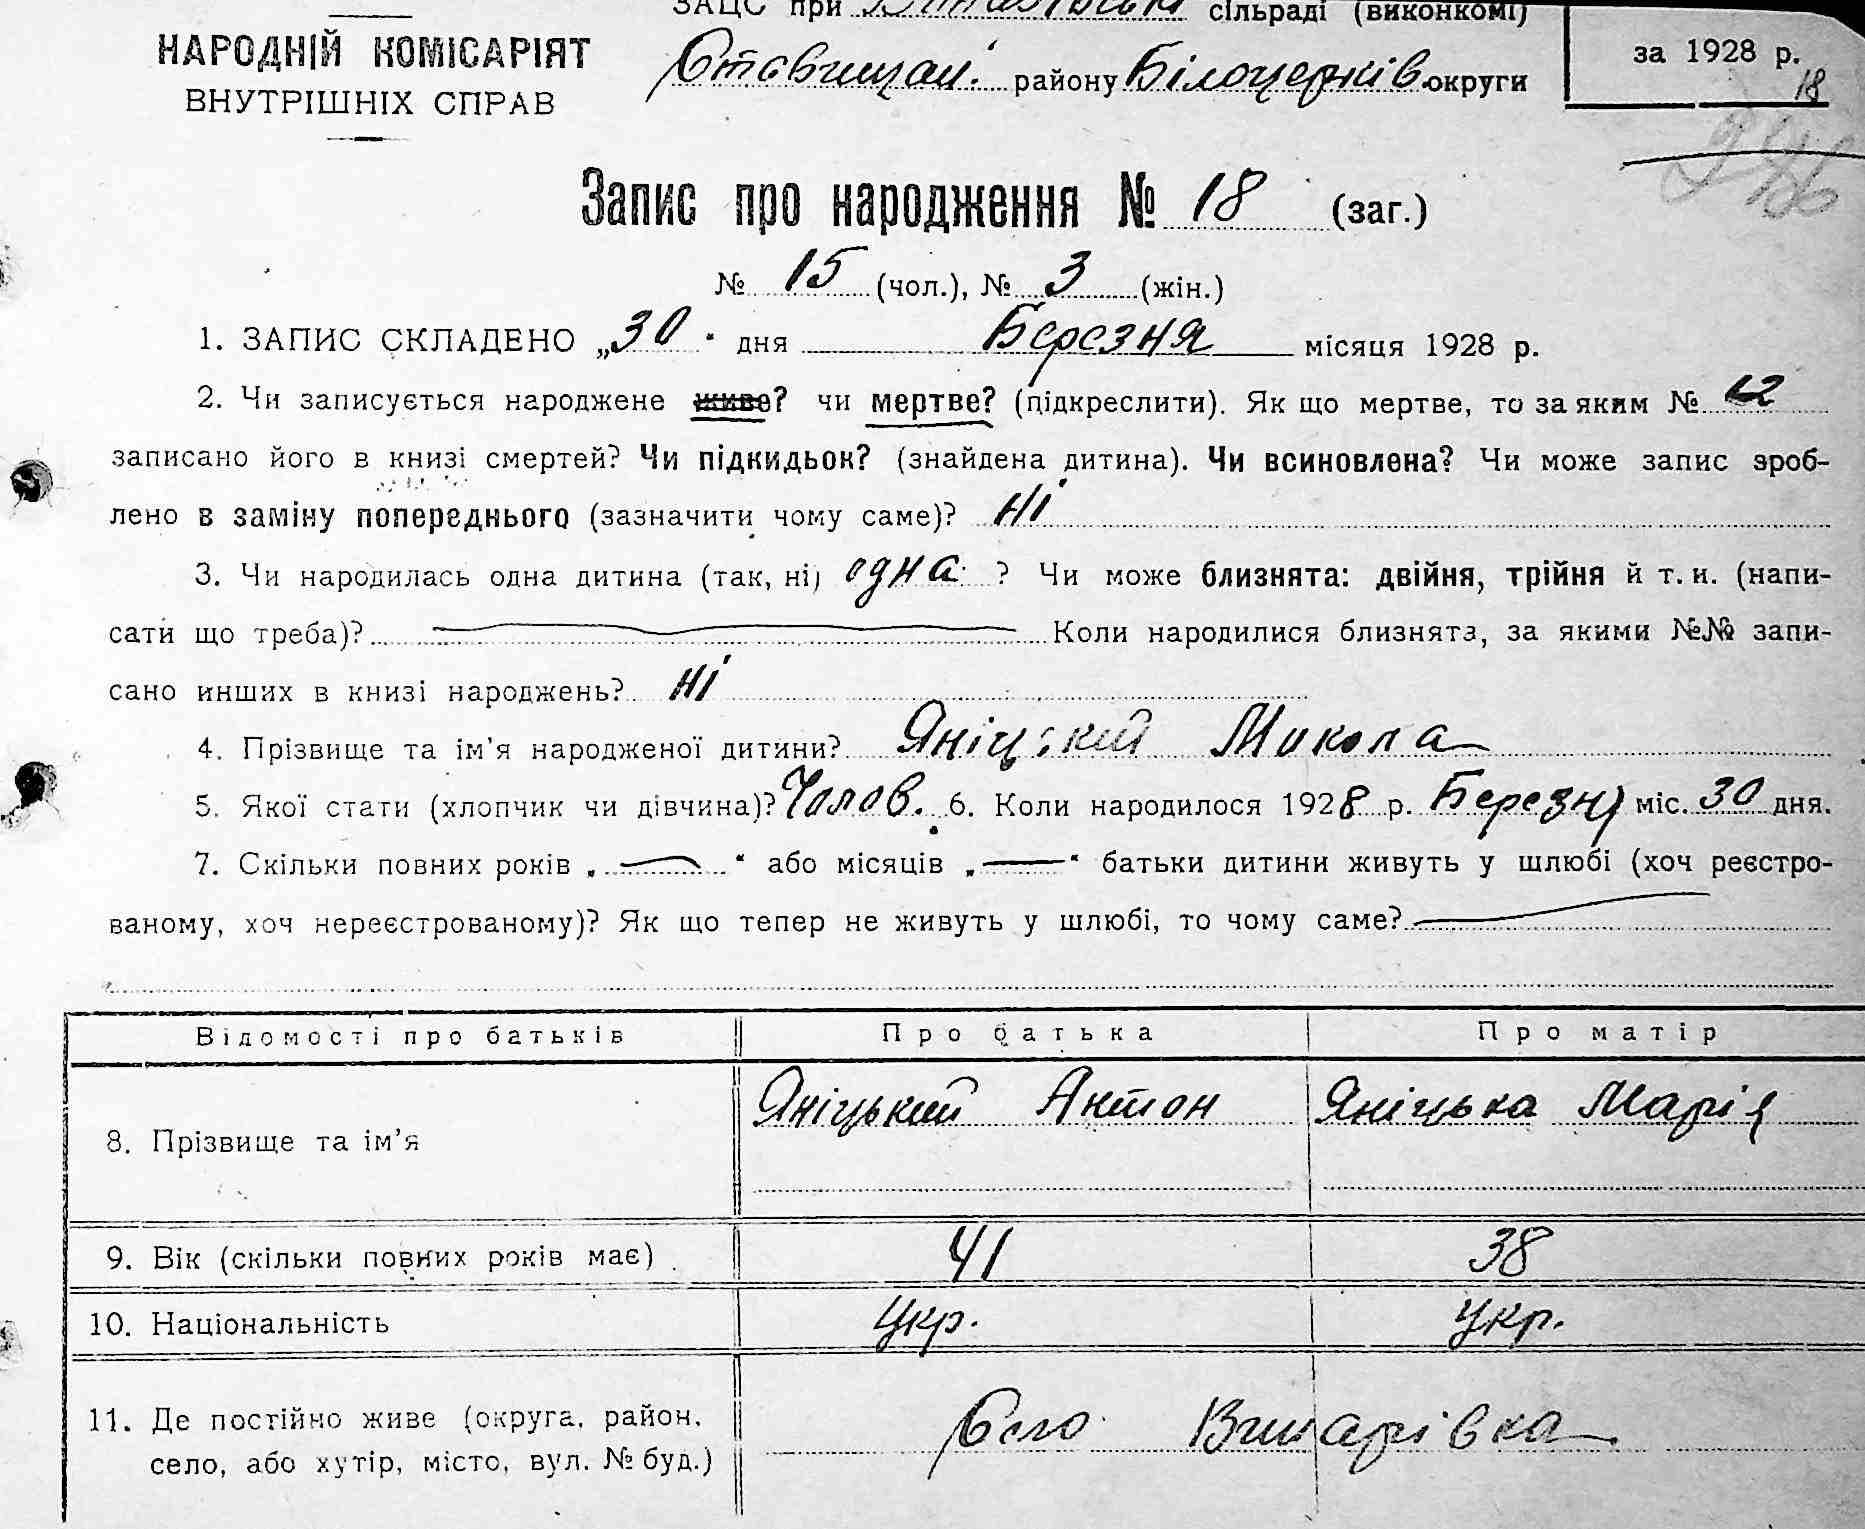 ЗАЦС при сільраді (виконкомі)
НАРОДНІЙ КОМІСАРІЯТ
ВНУТРІШНІХ СПРАВ
району Білоцерків округи
за 1928 р.
18
Запис про народження № 18 (заг.)
№ 15 (чол.), № 3 (жін.)
1. ЗАПИС СКЛАДЕНО „30“ дня Березня місяця 1928 р.
2. Чи записується народжене живе? чи мертве? (підкреслити). Як що мертве, то за яким № 12
записано його в книзі смертей? Чи підкидьок? (знайдена дитина). Чи всиновлена? Чи може запис зроб-
лено в заміну попереднього (зазначити чому саме)? Ні
3. Чи народилась одна дитина (так, ні) одна ? Чи може близнята: двійня, трійня й т. и. (напи-
сати що треба)? Коли народилися близнята, за якими №№ запи-
сано инших в книзі народжень? ні
4. Прізвище та ім'я народженої дитини? Яніцький Микола
5. Якої стати (хлопчик чи дівчина)? Чолов. 6. Коли народилося 1928 р. Березня міс. 30 дня.
7. Скільки повних років „ “ або місяців „ “ батьки дитини живуть у шлюбі (хоч реєстро-
ваному, хоч нереєстрованому)? Як що тепер не живуть у шлюбі, то чому саме?
Відомості про батьків Про батька Про матір
8. Прізвище та ім'я Яніцький Антон Яніцька Марія
9. Вік (скільки повних років має) 41 38
10. Національність Укр. Укр.
11. Де постійно живе (округа, район,
село, або хутір, місто, вул. № буд.)